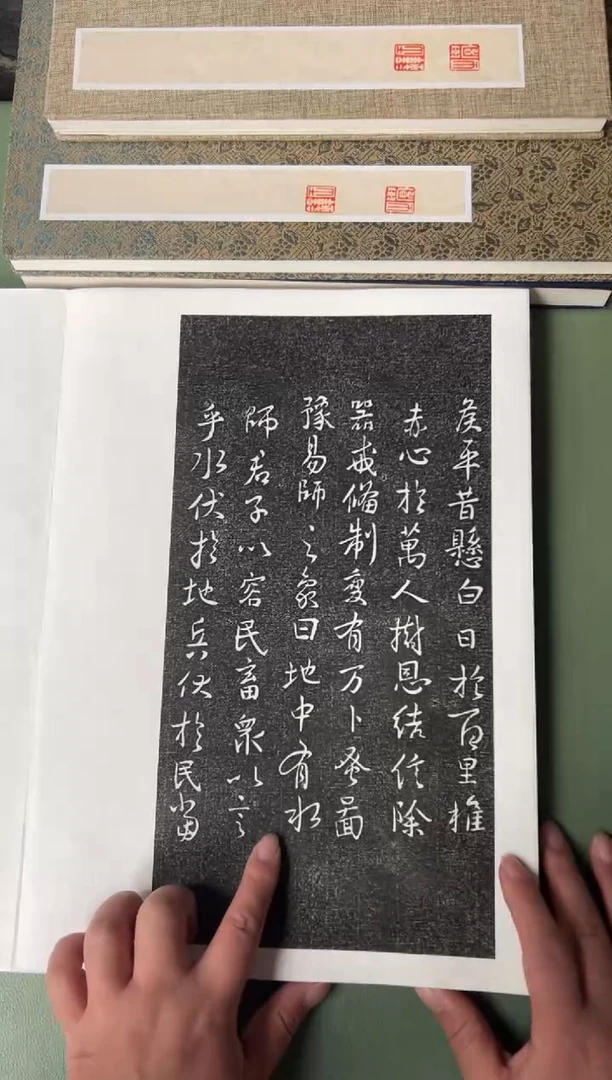 侯平昔懸白日於百里推
赤心於萬人樹恩結信除
器戒備制變有方卜蚤圖
豫易師之象曰地中有水
師君子以容民畜衆以言
乎水伏於地兵伏於民當